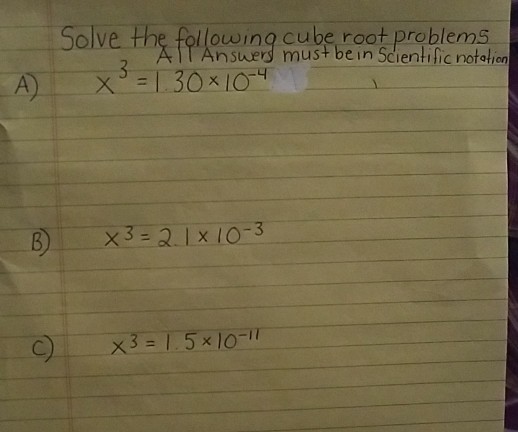 Solve the following cube root problems
All Answers must be in Scientific notation
A) x³ = 1.30 × 10⁻⁴
B) x³ = 2.1 × 10⁻³
C) x³ = 1.5 × 10⁻¹¹